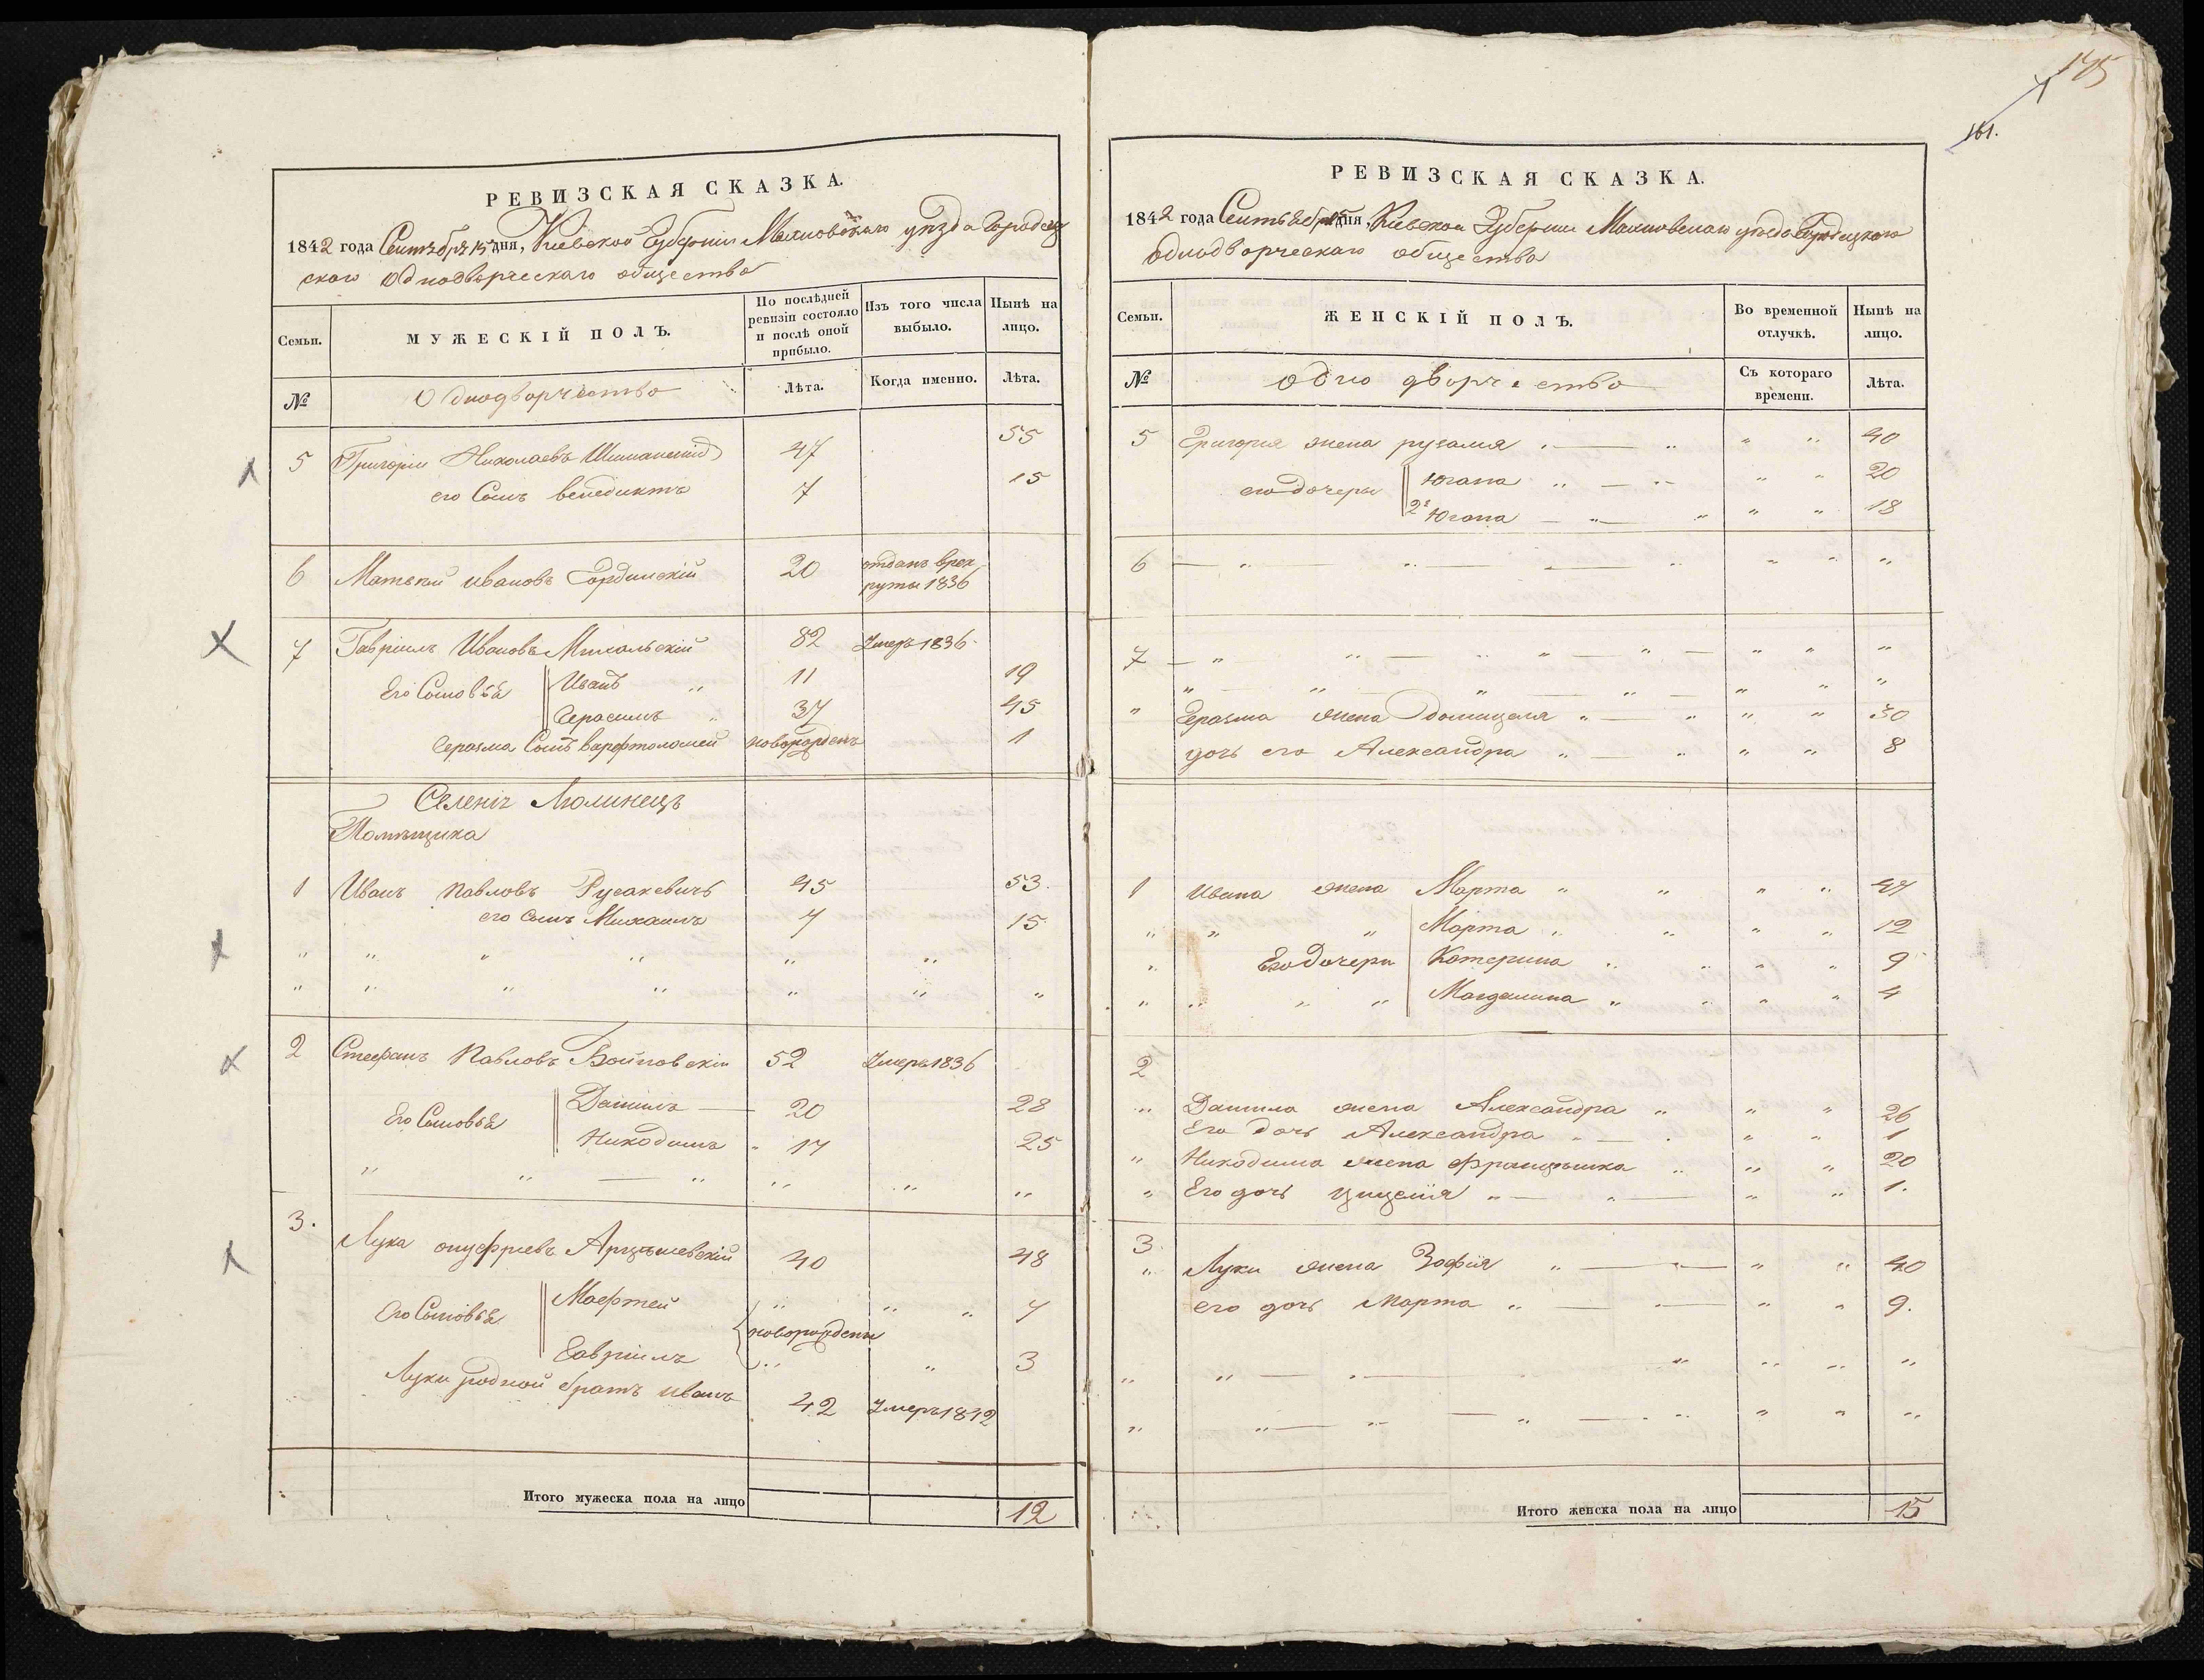 175
161.
РЕВИЗСКАЯ СКАЗКА.
1842 года Сентября 15 дня, Киевской Губернии Махновского уезда Городец
ского Однодворческаго общества
Семьи.
МУЖЕСКІЙ ПОЛЪ.
По послѣдней ревизіи состояло и послѣ оной прибыло.
Изъ того числа выбыло.
Нынѣ на лицо.
№
Однодворчество
Лѣта.
Когда именно.
Лѣта.
5 Григорій Николаевъ Шиманскій 47 55
его Сынъ венедиктъ 7 15
6 Матвей ивановъ Гординскій 20 отданъ врек
руты 1836
7 Гавріилъ Ивановъ Михальскій 82 Умеръ 1836
Его Сыновья Иванъ " 11 19
Герасимъ " 37 45
Геразма Сынъ варфтоломей новорожденъ 1
Селеніе Люлинецъ
Помѣщика
1 Иванъ Павловъ Русакевичъ 45 53.
его сынъ Михаилъ 7 15
" " " " " "
" " " " " " "
2 Стефанъ Павловъ Войновскій 52 Умеръ 1836
Его Сыновья Данилъ — 20 28
Никодимъ " 17 25
" " — " " " "
3. Лука онуфріевъ Арцышевскій 40 48
Его Сыновья Мафтей " " " 7
новорождены
Гавріилъ " " 3
Луки родной братъ иванъ 42 Умеръ 1842
Итого мужеска пола на лицо 12
РЕВИЗСКАЯ СКАЗКА.
1842 года Сентября 15 дня, Киевской Губернии Махновского уезда Городецкого
однодворческаго общества
Семьи.
ЖЕНСКІЙ ПОЛЪ.
Во временной отлучкѣ.
Нынѣ на лицо.
№
одно дворчество
Съ котораго времени.
Лѣта.
5 Григорія жена рузалия " — " " " 40
его дочери Югана " — " " " 20
2я Югана — " — " " " 18
6 — " " — — " " " "
7 — " " — " " — " — " " "
" — " — " — " — " " "
" Геразма жена домицеля " — " " " 30
дочь его Александра " — " " " 8
1 Ивана жена Марта " " " " 47
" " " Марта " " " " 12
" Его Дочери Катерина " " " " 9
" " " " Магдалина " " " " 4
2
" Данила жена Александра " " " 26
Его дочь Александра " — " " " 1
" Никодима жена Францышка " " " 20
" Его дочь цицелія " — " — " " 1.
3
" Луки жена Зофія " — " — " " 40
его дочь Марта " — " — " " 9.
" " — " — " " " "
" " — " — " — " " " " "
Итого женска пола на лицо 15